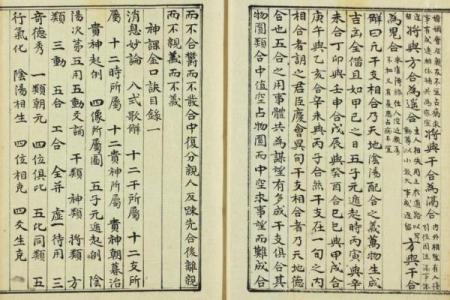 將與方合為遙合
方與干
為鬼合
解曰凡干支相合乃天地陰陽配合之義萬物生成
吉凶全備且如甲己之日五子元遁起時丙寅與辛
未合丁卯與壬申合戊辰與癸酉合己巳與甲戌合
庚午與乙亥合辛未與丙子合然干支在一旬之內
相合者謂之君臣慶會異旬干支相合者乃天地德
合也五合之用事體共為謀理有多成干支俱合其
物團類合中值空占物團而中空求事理而難成合
而不合鬱而不散合中復分親人反疎先合後離親
而不親義而不義
神課金口訣目錄一
消息妙論 八式歌解 十干所屬 十二支所
屬 十二時所屬 十二貴神所屬 貴神朝暮治
貴神起例 四像所屬圖 五子元遁起例 陰
陽次第五用五動爻論 干類 神類 將類 方
類 三動 五合 工合 全并 虛一待用 三
奇德秀 一類朝元 四位俱比 五化同類 五
行氣化 陰陽相生 四位相克 四爻生克